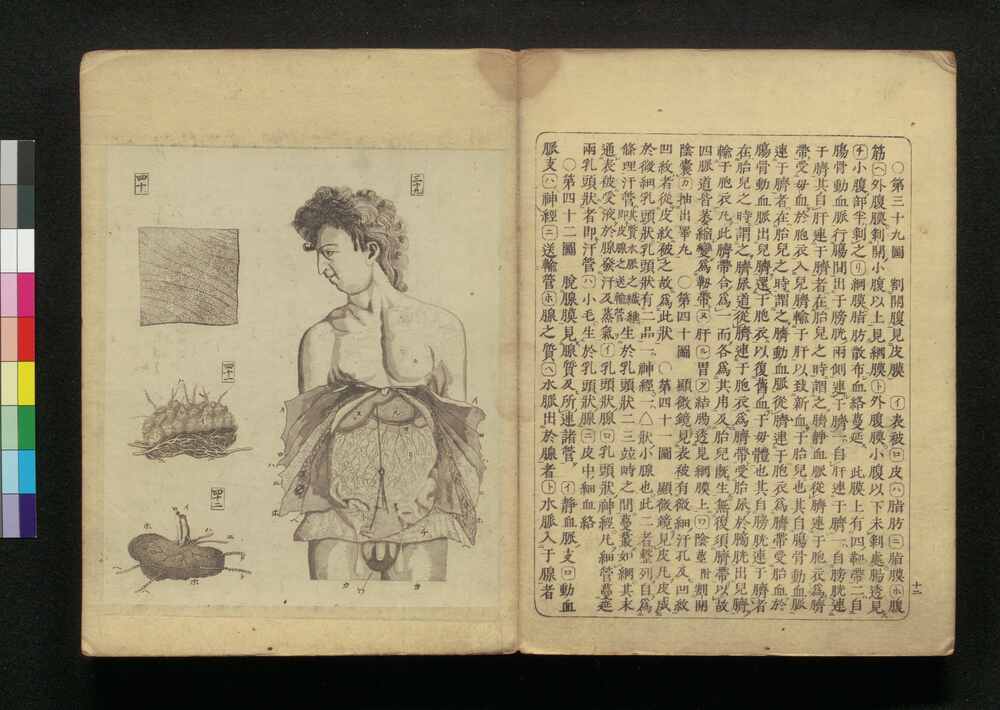 ○第三十九圖 割開腹見皮膜 ㋑表被㋺皮㋩脂肪㋥脂膜㋭腹
筋㋬外腹膜剌開小腹以上見網膜㋣外腹膜小腹以下未剌處腸透見
㋠小腹卽半剌之㋷網膜脂肪散布血絡蔓延 此膜上有四靭帶二自
腸骨動血脈行腸間出于膀胱兩側連于臍一自肝連于臍一自膀胱連
于臍其自肝連于臍者在胎兒之時謂之臍靜血脈從臍連于胞衣爲臍
帶受毋血於胞衣入兒臍輸于肝以致新血于胎兒也其自腸骨動血脈
連于臍者在胎兒之時謂之臍動血脈從臍連于胞衣爲臍帶受胎血於
腸骨動血脈出兒臍還于胞衣以復舊血于毋體也其自膀胱連于臍者
在胎兒之時謂之臍尿道從臍連于胞衣爲臍帶受胎尿於膀胱出兒臍
輸于胞衣凡此臍帶合爲一而各爲其用及胎兒既生無復須臍帶以故
四脈道皆萎縮變爲靭帶㋦肝㋸胃㋾結腸透見網膜上㋻陰莖㋕割開
陰囊㋕抽出睪丸 ○第四十圖 顯微鏡見表被有微細汗孔及凹紋
凹紋者從皮紋被之故爲此狀 ○第四十一圖 顯微鏡見皮凡皮成
於微細乳頭狀乳頭狀有二品一神經一△狀小腺也此二者整列自爲
條理汗管卽皮腺之送輸管其質水脈之纖維生於乳頭狀二三竝時之間蔓裏如網其末
通表被受液於腺發汗及蒸氣㋑乳頭狀腺㋺乳頭狀神經凡細管蔓延
兩乳頭狀者卽汗管㋩小毛生於乳頭狀腺㋥皮中細血絡
○第四十二圖 脫腺膜見腺質及所連諸管 ㋑靜血脈支㋺動血
脈支㋩神經㋥送輸管㋭腺之質㋬水脈出於腺者㋣水脈入于腺者
十二
三十九
四十
四十一
四十二